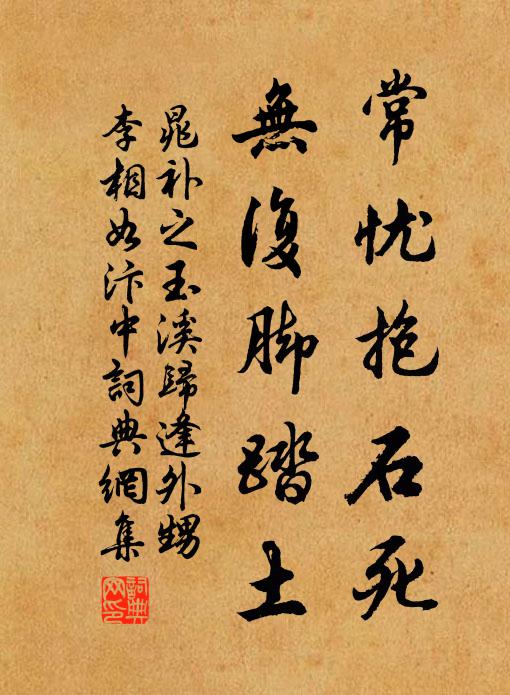 常忧抱石死
無復脚踏土
晁补之玉溪歸逢外甥
李相如汴中詞典網集
詞典网印